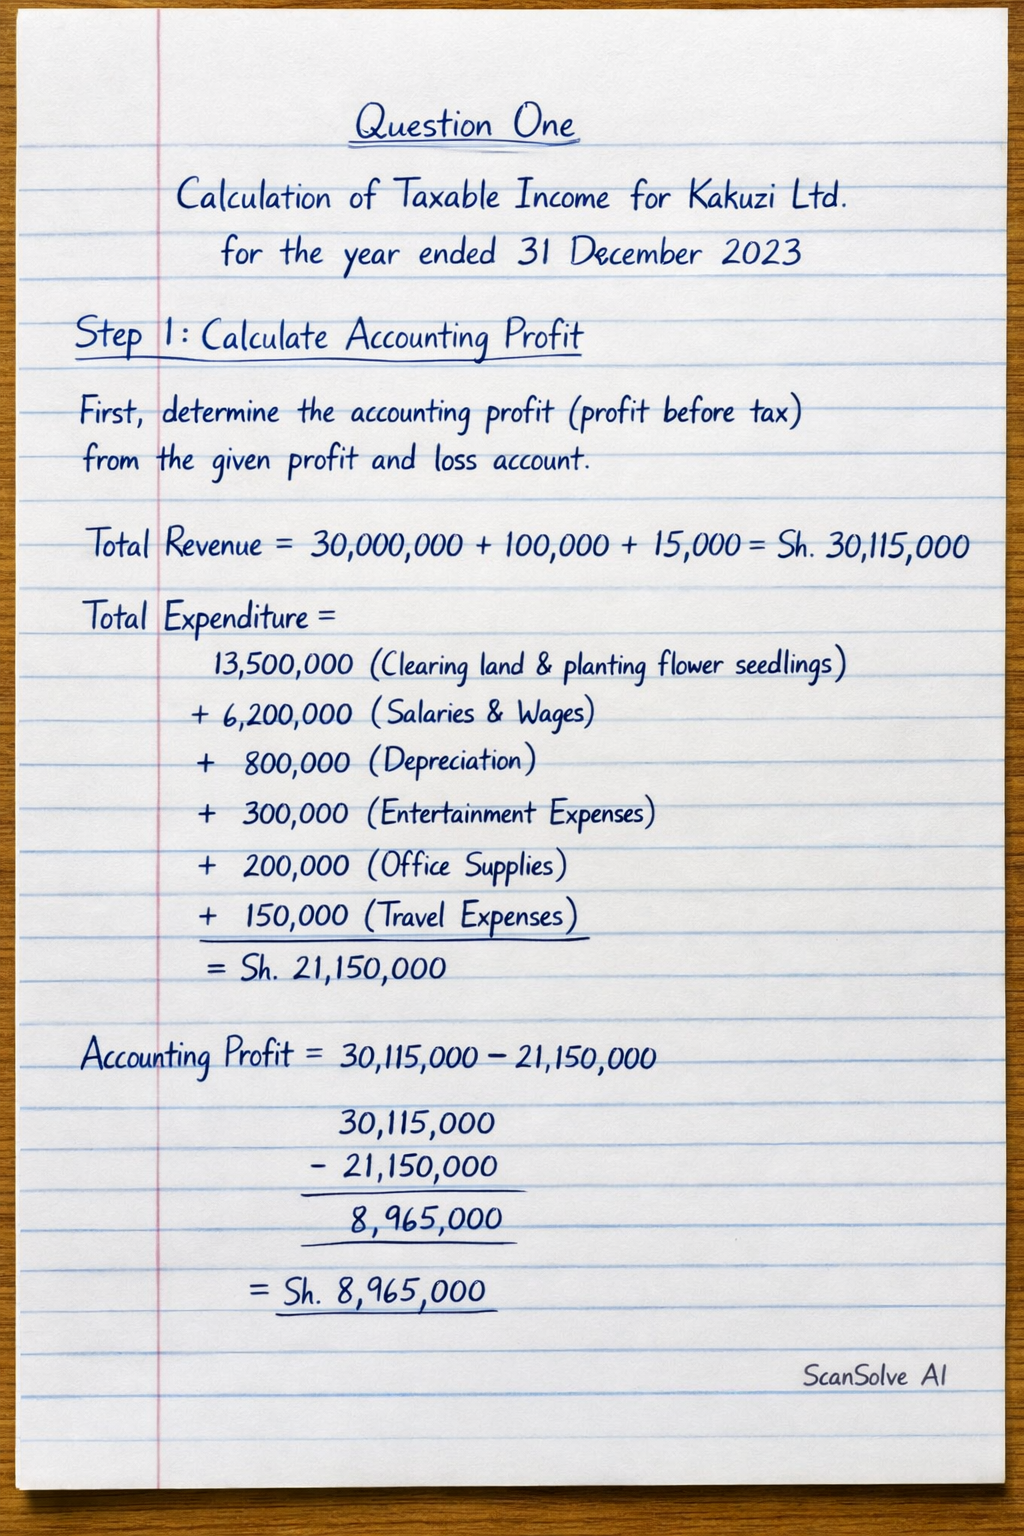 Question One
Calculation of Taxable Income for Kakuzi Ltd.
for the year ended 31 December 2023
Step 1: Calculate Accounting Profit
First, determine the accounting profit (profit before tax)
from the given profit and loss account.
Total Revenue = 30,000,000 + 100,000 + 15,000 = Sh. 30,115,000
Total Expenditure =
13,500,000 (Clearing land & planting flower seedlings)
+ 6,200,000 (Salaries & Wages)
+ 800,000 (Depreciation)
+ 300,000 (Entertainment Expenses)
+ 200,000 (Office Supplies)
+ 150,000 (Travel Expenses)
= Sh. 21,150,000
Accounting Profit = 30,115,000 − 21,150,000
30,115,000
- 21,150,000
8,965,000
= Sh. 8,965,000
ScanSolve AI